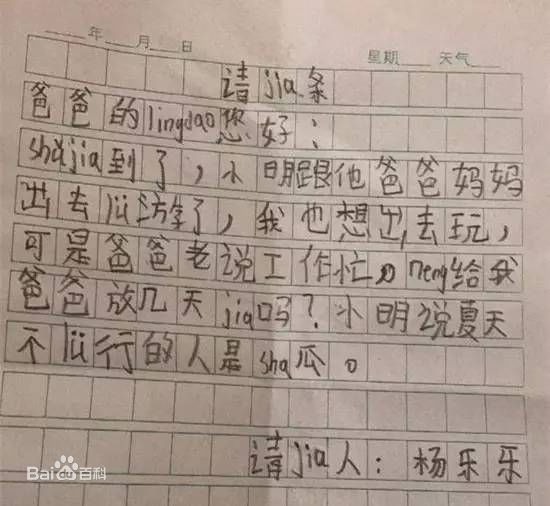 年 月 日 星期 天气
请jia条
爸爸的lingdao您好：
shǔjia到了，小明跟他爸爸妈妈
出去lü游了，我也想出去玩，
可是爸爸老说工作忙。neng给我
爸爸放几天jia吗？小明说夏天
不lü行的人是sha瓜。
请jia人：杨乐乐
Baidu百科